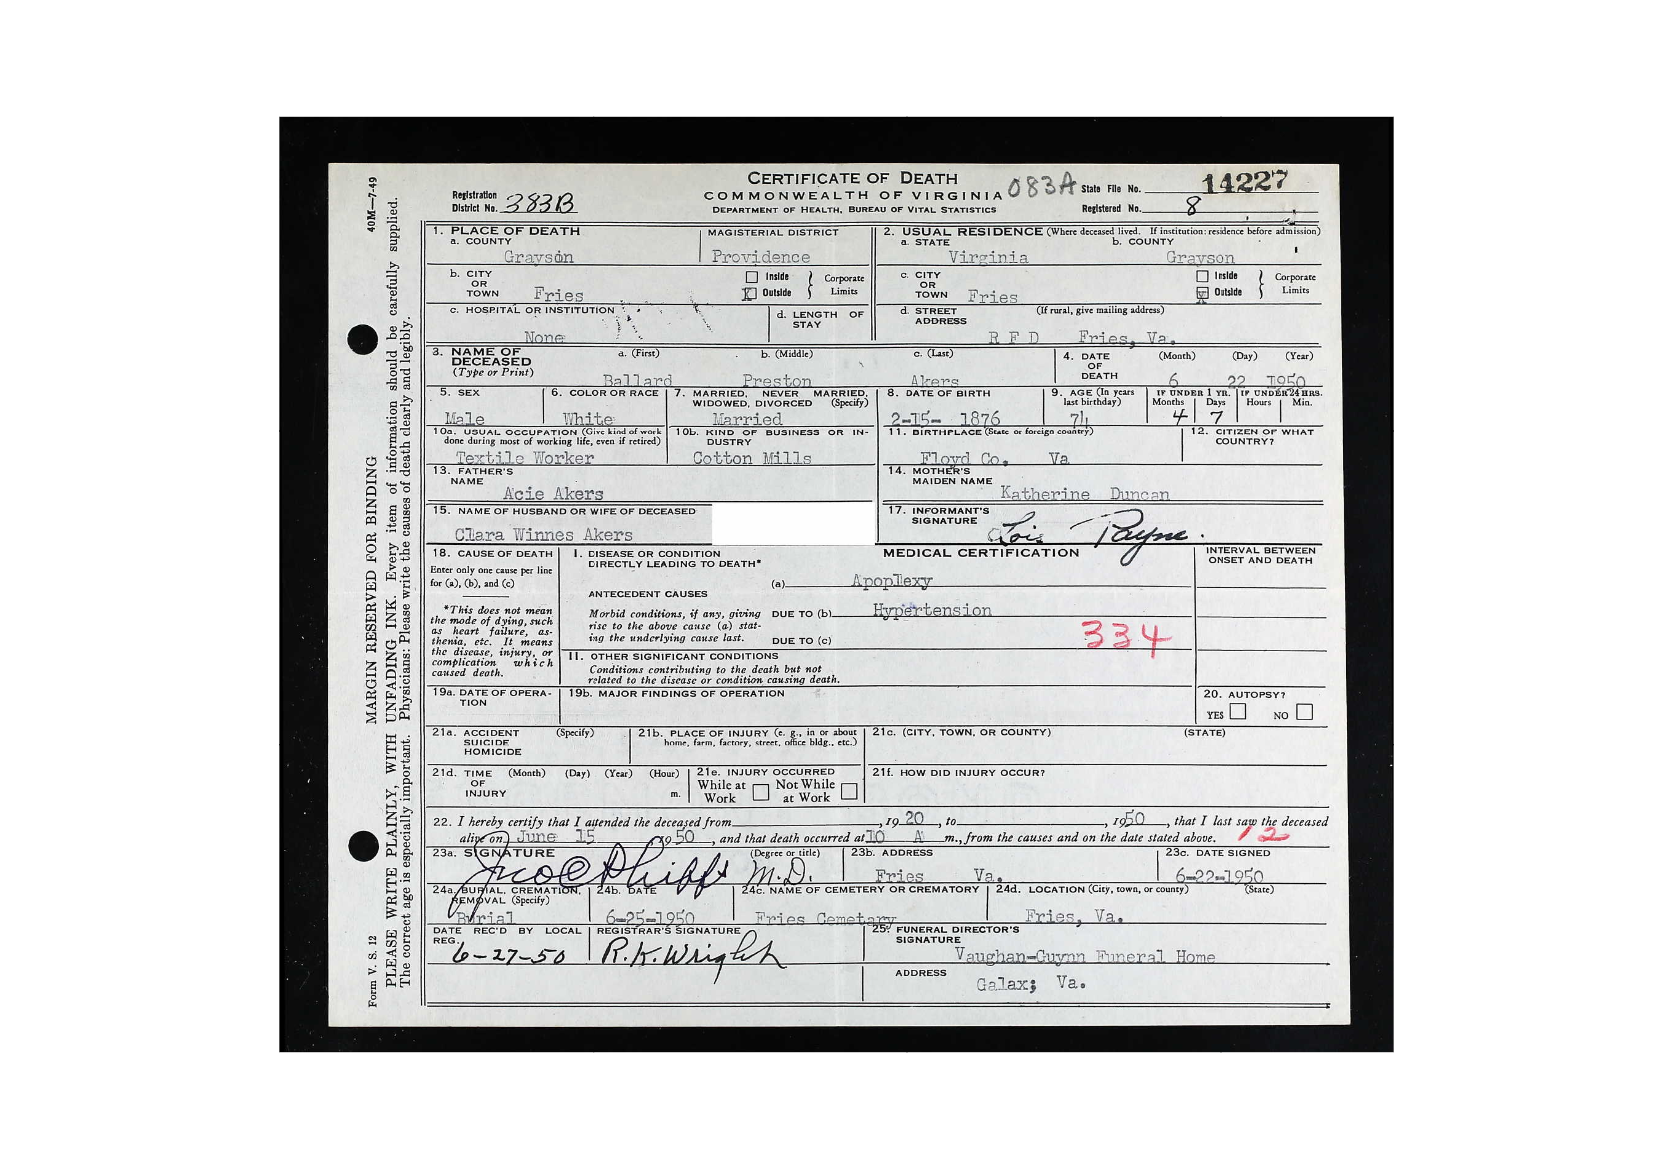 40M—7-49
MARGIN RESERVED FOR BINDING
PLEASE WRITE PLAINLY, WITH UNFADING INK. Every item of information should be carefully supplied.
The correct age is especially important. Physicians: Please write the causes of death clearly and legibly.
Form V. S. 12
CERTIFICATE OF DEATH
COMMONWEALTH OF VIRGINIA
DEPARTMENT OF HEALTH, BUREAU OF VITAL STATISTICS
083A
Registration District No. 383B
State File No. 14227
Registered No. 8
1. PLACE OF DEATH
a. COUNTY
Grayson
MAGISTERIAL DISTRICT
Providence
2. USUAL RESIDENCE (Where deceased lived. If institution: residence before admission)
a. STATE b. COUNTY
Virginia Grayson
b. CITY OR TOWN Fries
Inside
X Outside
Corporate Limits
c. CITY OR TOWN Fries
Inside
X Outside
Corporate Limits
c. HOSPITAL OR INSTITUTION
None
d. LENGTH OF STAY
d. STREET ADDRESS (If rural, give mailing address)
R F D Fries, Va.
3. NAME OF DECEASED (Type or Print)
a. (First) b. (Middle) c. (Last)
Ballard Preston Akers
4. DATE OF DEATH (Month) (Day) (Year)
6 22 1950
5. SEX
Male
6. COLOR OR RACE
White
7. MARRIED, NEVER MARRIED, WIDOWED, DIVORCED (Specify)
Married
8. DATE OF BIRTH
2-15- 1876
9. AGE (In years last birthday)
74
IF UNDER 1 YR. Months Days
4 7
IF UNDER 24 HRS. Hours Min.
10a. USUAL OCCUPATION (Give kind of work done during most of working life, even if retired)
Textile Worker
10b. KIND OF BUSINESS OR INDUSTRY
Cotton Mills
11. BIRTHPLACE (State or foreign country)
Floyd Co. Va
12. CITIZEN OF WHAT COUNTRY?
13. FATHER'S NAME
Acie Akers
14. MOTHER'S MAIDEN NAME
Katherine Duncan
15. NAME OF HUSBAND OR WIFE OF DECEASED
Clara Winnes Akers
17. INFORMANT'S SIGNATURE
Lois Payne.
18. CAUSE OF DEATH
Enter only one cause per line for (a), (b), and (c)
*This does not mean the mode of dying, such as heart failure, asthenia, etc. It means the disease, injury, or complication which caused death.
MEDICAL CERTIFICATION
INTERVAL BETWEEN ONSET AND DEATH
I. DISEASE OR CONDITION DIRECTLY LEADING TO DEATH*
(a) Apoplexy
ANTECEDENT CAUSES
Morbid conditions, if any, giving rise to the above cause (a) stating the underlying cause last.
DUE TO (b) Hypertension
DUE TO (c)
334
II. OTHER SIGNIFICANT CONDITIONS
Conditions contributing to the death but not related to the disease or condition causing death.
19a. DATE OF OPERATION
19b. MAJOR FINDINGS OF OPERATION
20. AUTOPSY?
YES NO
21a. ACCIDENT SUICIDE HOMICIDE (Specify)
21b. PLACE OF INJURY (e. g., in or about home, farm, factory, street, office bldg., etc.)
21c. (CITY, TOWN, OR COUNTY) (STATE)
21d. TIME OF INJURY (Month) (Day) (Year) (Hour) m.
21e. INJURY OCCURRED
While at Work Not While at Work
21f. HOW DID INJURY OCCUR?
22. I hereby certify that I attended the deceased from , 1920 , to , 1950 , that I last saw the deceased
alive on June 15 1950 , and that death occurred at 10 A m., from the causes and on the date stated above. 12
23a. SIGNATURE (Degree or title)
Jno C Phipps M.D.
23b. ADDRESS
Fries Va.
23c. DATE SIGNED
6-22-1950
24a. BURIAL, CREMATION, REMOVAL (Specify)
Burial
24b. DATE
6-25-1950
24c. NAME OF CEMETERY OR CREMATORY
Fries Cemetary
24d. LOCATION (City, town, or county) (State)
Fries, Va.
DATE REC'D BY LOCAL REG.
6-27-50
REGISTRAR'S SIGNATURE
R.K. Wright
25. FUNERAL DIRECTOR'S SIGNATURE
Vaughan-Guynn Funeral Home
ADDRESS
Galax; Va.